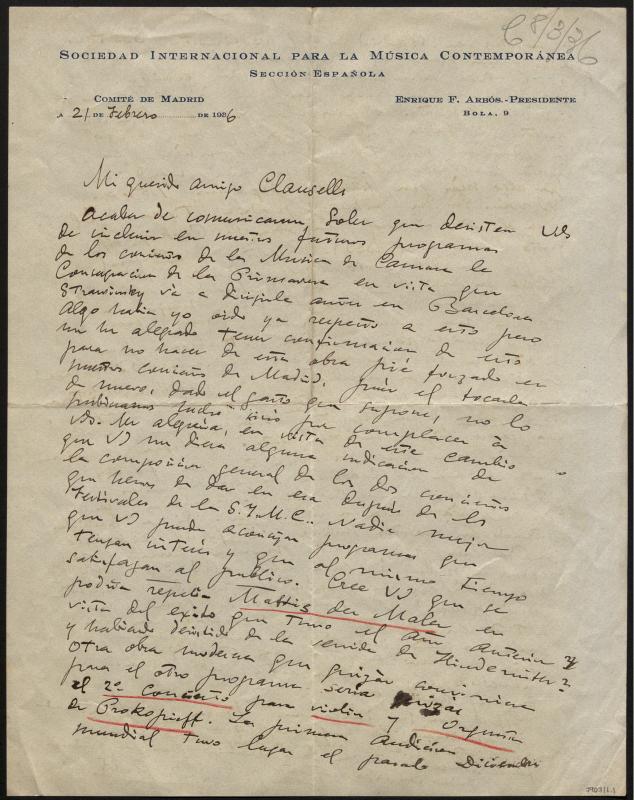 6 8/3/36
SOCIEDAD INTERNACIONAL PARA LA MÚSICA CONTEMPORÁNEA
SECCIÓN ESPAÑOLA
COMITÉ DE MADRID
ENRIQUE F. ARBÓS.-PRESIDENTE
BOLA, 9
A 21 DE Febrero DE 1936
Mi querido amigo Clausells
Acaba de comunicarme Soler que desisten Vds
de incluir en nuestros futuros programas
de los conciertos de la Música de Camara la
Consagracion de la Primavera en vista que
Strawinsky va a dirigirla antes en Barcelona
Algo habia yo oido ya respecto a esto pero
no he
tener confirmacion de esto
para no hacer de esta obra
forzado en
nuestros conciertos de Madrid, pues el tocarla
de nuevo, dado el gasto que supone, no lo
sino por complacer a
Vds. Me
en vista de este cambio
que Vd me diera alguna indicacion de
la composicion general de los dos conciertos
que hemos de dar en esa despues de los
festivales de la S.I.M.C.. Nadie mejor
que Vd puede aconsejar programas que
tengan interés y que al mismo tiempo
satisfagan al publico. Cree Vd que se
podria repetir Mathis der Maler en
vista del exito que tuvo el año anterior y
y habiendo desistido de la venida de Hindemith?
Otra obra moderna que quizás conviniera
para el otro programa seria quizas
el 2º Concierto para violin y Orquesta
de Prokopieff. La primera audicion
mundial tuvo lugar el pasado Diciembre
J903/1.1